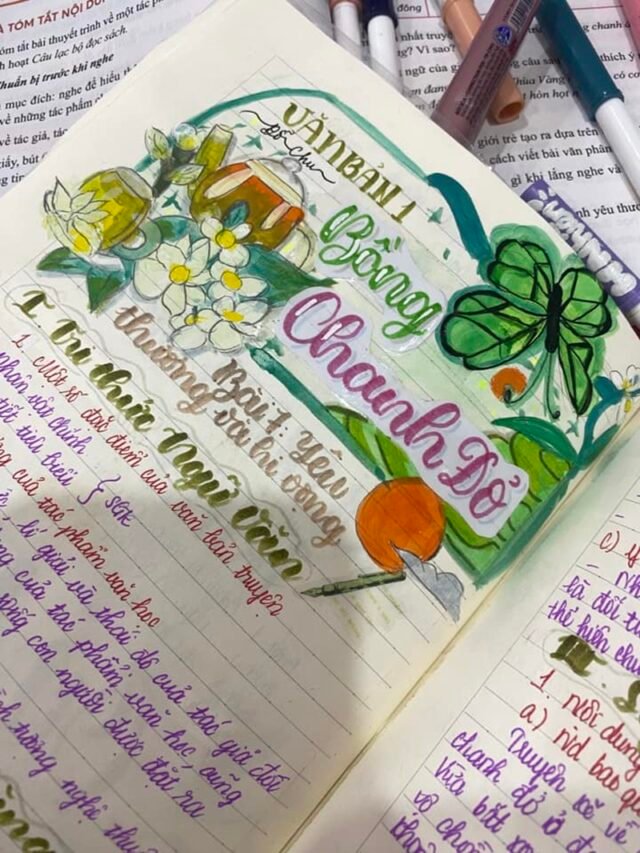 A TÓM TẮT NỘI DU
óm tắt bài thuyết trình về một tác p
h hoạt Câu lạc bộ đọc sách.
huẩn bị trước khi nghe
mục đích: nghe để hiểu
về những tác phẩm
về tác giả, tác
giấy, bút
đông
chanh
ng? Vì sao?
ngữ của
Chùa Vàng
hòn
giới trẻ tạo ra dựa trên
cách viết bài văn phân
gì khi lắng nghe và
nh yêu thươ
VĂN BẢN 1
~Đỗ Chu~
Bồng
Chanh Đỏ
Bài 7: Yêu
thương và hi vọng
I. Tri thức Ngữ Văn
1. Một số đặc điểm của văn bản truyện
nhân vật chính
tiết tiêu biểu } SGK
của tác phẩm văn học
lí giải và thái độ của tác giả đối
của tác phẩm văn học, cũng
sống con người được đặt ra
tượng nghệ thu
c)
- nh
là đối t
thể hiện ch
III.
1. Nội dung
a) nd bao q
Truyện kể về
chanh đỏ ở đ
vừa bắt
vợ chồ